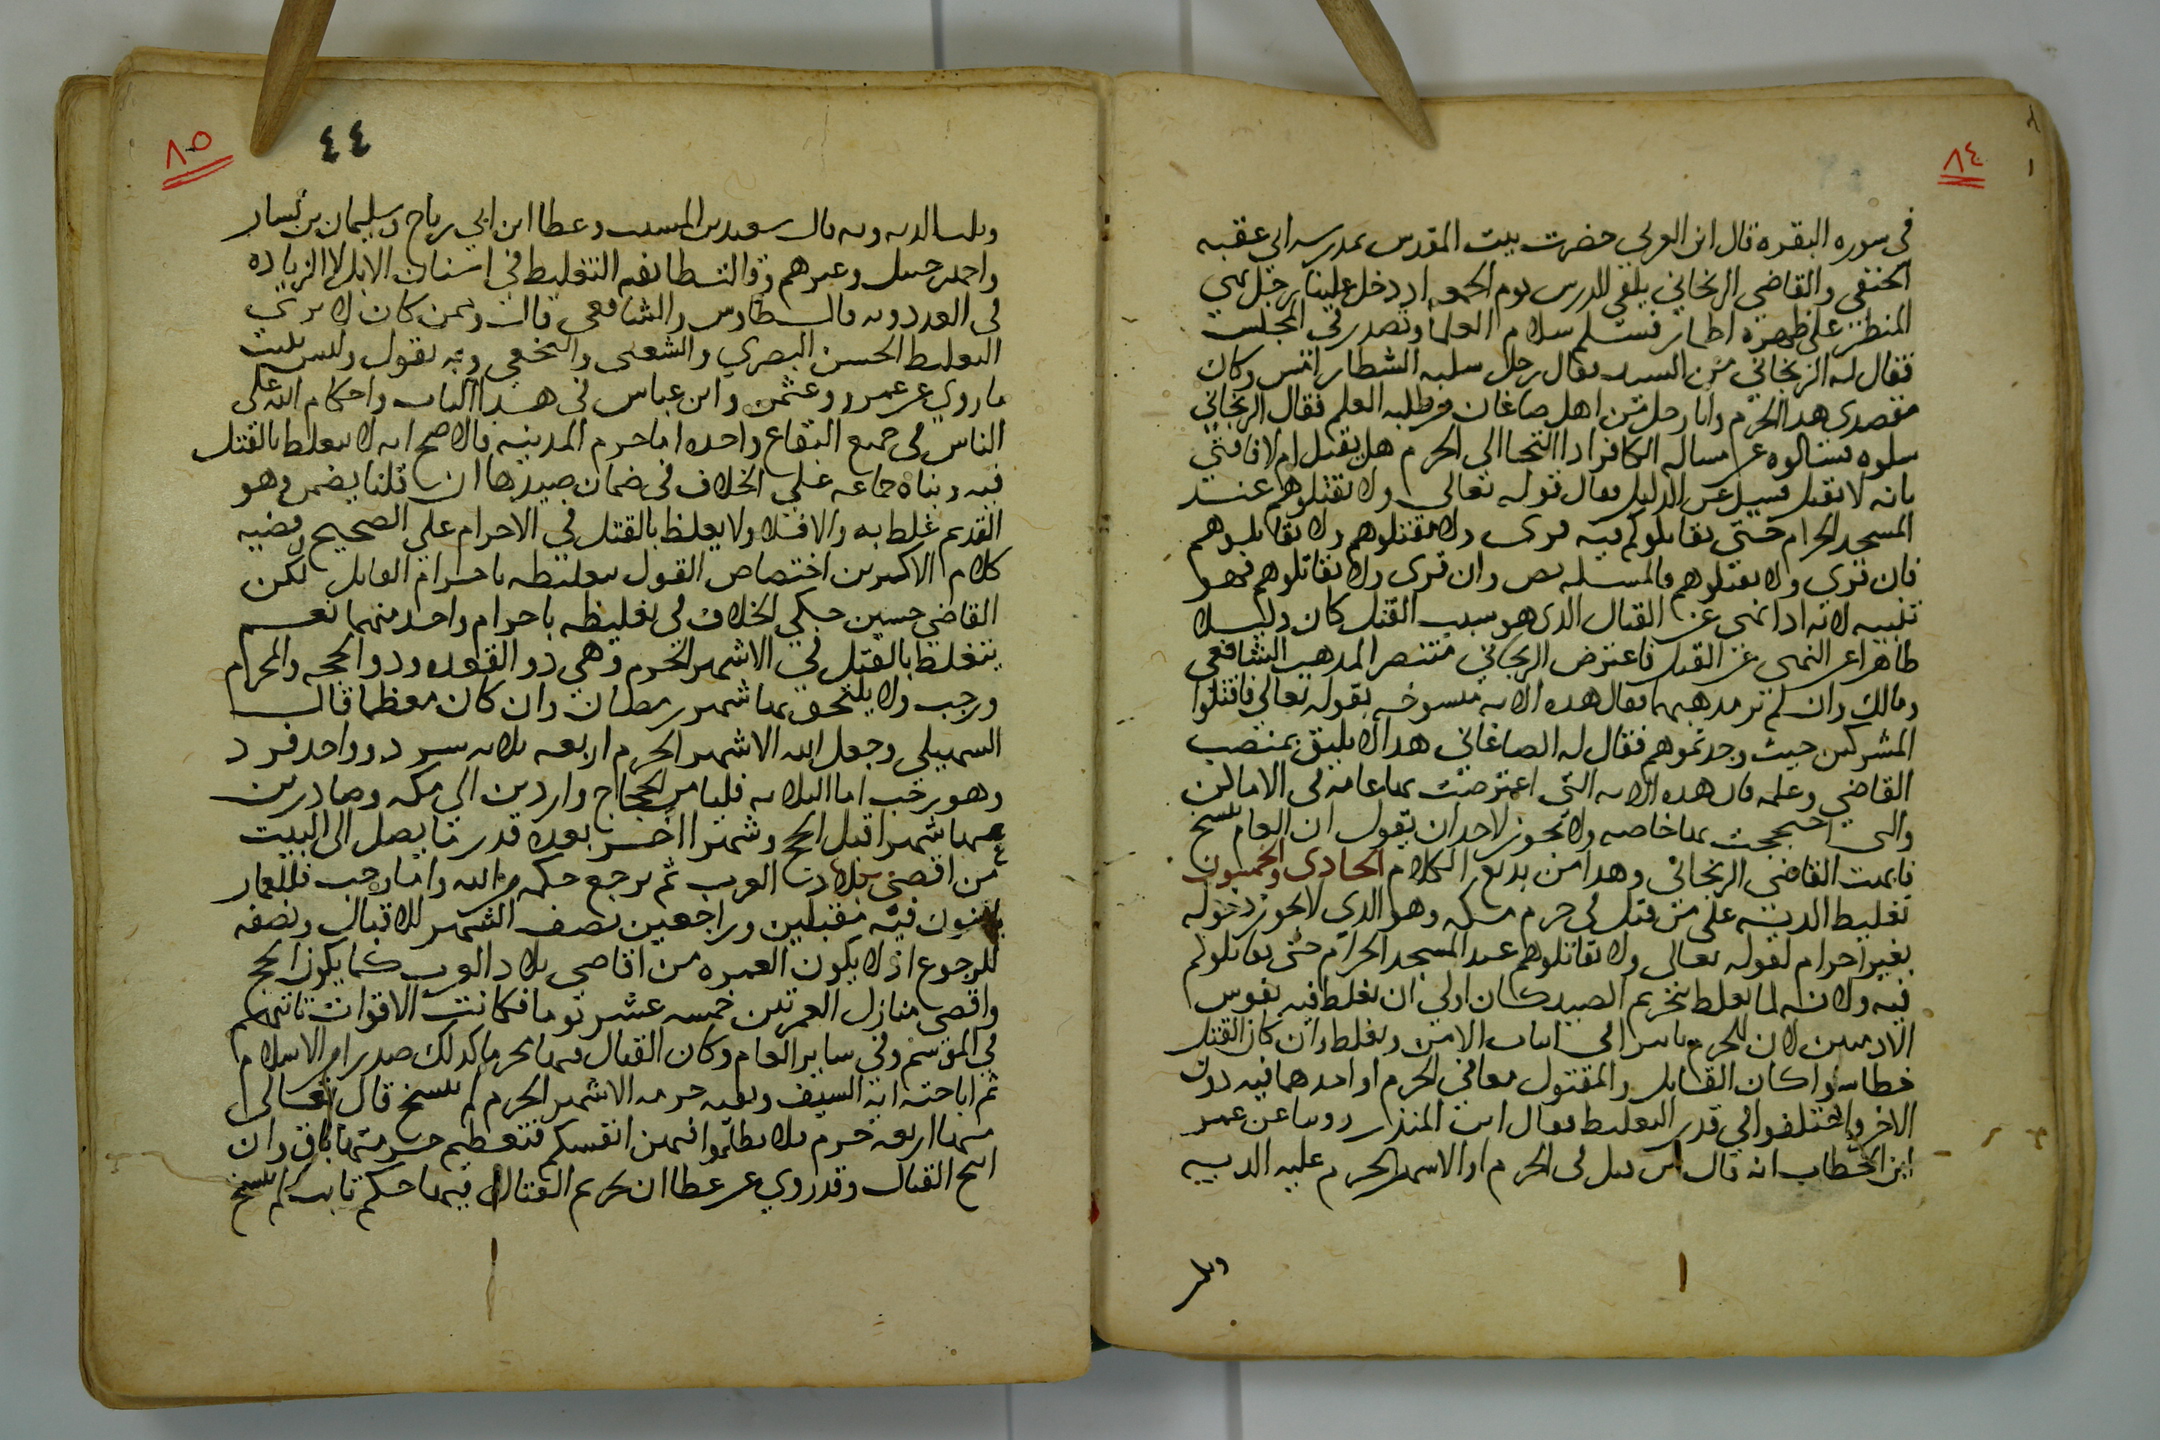 ٨٤
في سوره البقره قال ابن العربي حضرت بيت المقدس بمدرسه ابي عقبه
الحنفي والقاضي الزنجاني يلقي الدرس يوم الجمعه اذ دخل علينا رجل بهي
المنظر على ظهره اطمار فسلم سلام العلما وتصدر في المجلس
فقال له الزنجاني من السيد فقال رجل سلبه الشطار امس وكان
مقصدي هدا الحرم وانا رجل من اهل صاغان من طلبه العلم فقال الزنجاني
سلوه فسالوه عن مساله الكافر ادا التجا الى الحرم هل يقتل ام لا فافتي
بانه لا يقتل فسيل عن الدليل فقال قوله تعالى ولا تقتلوهم عند
المسجد الحرام حتى يقاتلوكم فيه قرى ولا تقتلوهم ولا تقاتلوهم
فان قرى ولا تقتلوهم فالمسله نص وان قرى ولا تقاتلوهم فهو
تنبيه لانه ادا نهى عن القتال الدى هو سبب القتل كان دليلا
ظاهرا عن النهى عن القتل فاعترض الزنجاني منتصرا لمدهب الشافعي
ومالك وان لم ير مدهبهما فقال هده الايه منسوخه بقوله تعالى فاقتلوا
المشركين حيث وجدتموهم فقال له الصاغاني هدا لا يليق بمنصب
القاضي وعلمه فان هده الايه التي اعترضت بها عامه في الاماكن
والتى احتججت بها خاصه ولا يجوز لاحد ان يقول ان العام ينسخ
فابهت القاضي الزنجاني وهدا من بديع الكلام الحادى والخمسون
تغليظ الديه على من قتل في حرم مكه وهو الذي لا يجوز دخوله
بغير احرام لقوله تعالى ولا تقاتلوهم عند المسجد الحرام حتى يقاتلوكم
فيه ولانه لما تغلظ بتحريم الصيد كان اولى ان تغلظ فيه نفوس
الادميين لان للحرم تاثيرا في اثبات الامن وتغلظ وان كان القتل
خطا سوا كان القاتل والمقتول معا في الحرم او احدهما فيه دون
الاخر واختلفوا في قدر التغليظ فقال ابن المنذر روينا عن عمر
ابن الخطاب انه قال من قتل في الحرم او الاشهر الحرم عليه الديه
وثلث
٨٥
٤٤
وثلث الديه وبه قال سعيد بن المسيب وعطا ابن ابي رباح وسليمان بن يسار
واحمد بن حنبل وغيرهم وقالت طائفه التغليظ في اسنان الابل لا الزياده
في العدد وبه قال طاوس والشافعي قالت وممن كان لا يرى
التغليظ الحسن البصري والشعبى والنخعي وبه نقول وليس يثبت
ما روي عن عمر وعثمن وابن عباس في هدا الباب واحكام الله على
الناس في جميع البقاع واحده اما حرم المدينه فالاصح انه لا تغلظ بالقتل
فيه وبناه جماعه على الخلاف في ضمان صيدها ان قلنا يضمن وهو
القديم غلظ به والا فلا ولا يغلظ بالقتل في الاحرام على الصحيح وقضيه
كلام الاكثرين اختصاص القول بتغليظه باحرام القاتل لكن
القاضي حسين حكي الخلاف في تغليظه باحرام واحد منهما نعم
يتغلظ بالقتل في الاشهر الحرم وهي دو القعده ودو الحجه والمحرام
ورجب ولا يلتحق بها شهر رمضان وان كان معظما قال
السهيلي وجعل الله الاشهر الحرم اربعه ثلاثه سرد وواحد فرد
وهو رجب اما الثلاثه فليامن الحجاج واردين الى مكه وصادرين
عنها شهرا قبل الحج وشهرا اخر بعده قدر ما يصل الى البيت
من اقصى بلاد العرب ثم يرجع حكمه من الله واما رجب فللعمار
يامنون فيه مقبلين وراجعين نصف الشهر للاقبال ونصفه
للرجوع اذ لا يكون العمره من اقاصي بلاد العرب كما يكون الحج
واقصى منازل العمرتين خمسه عشر يوما فكانت الاقوات تاتيهم
في المواسم وفي ساير العام وكان القتال فيها محرما كدلك صدرا من الاسلام
ثم اباحته ايه السيف وبقيه حرمه الاشهر الحرم لم تنسخ قال تعالى
منها اربعه حرم فلا تظلموا فيهن انفسكم فتعظيم حرمتها باق وان
ابيح القتال وقد روي عن عطا ان تحريم القتال فيها حكم ثابت لم ينسخ